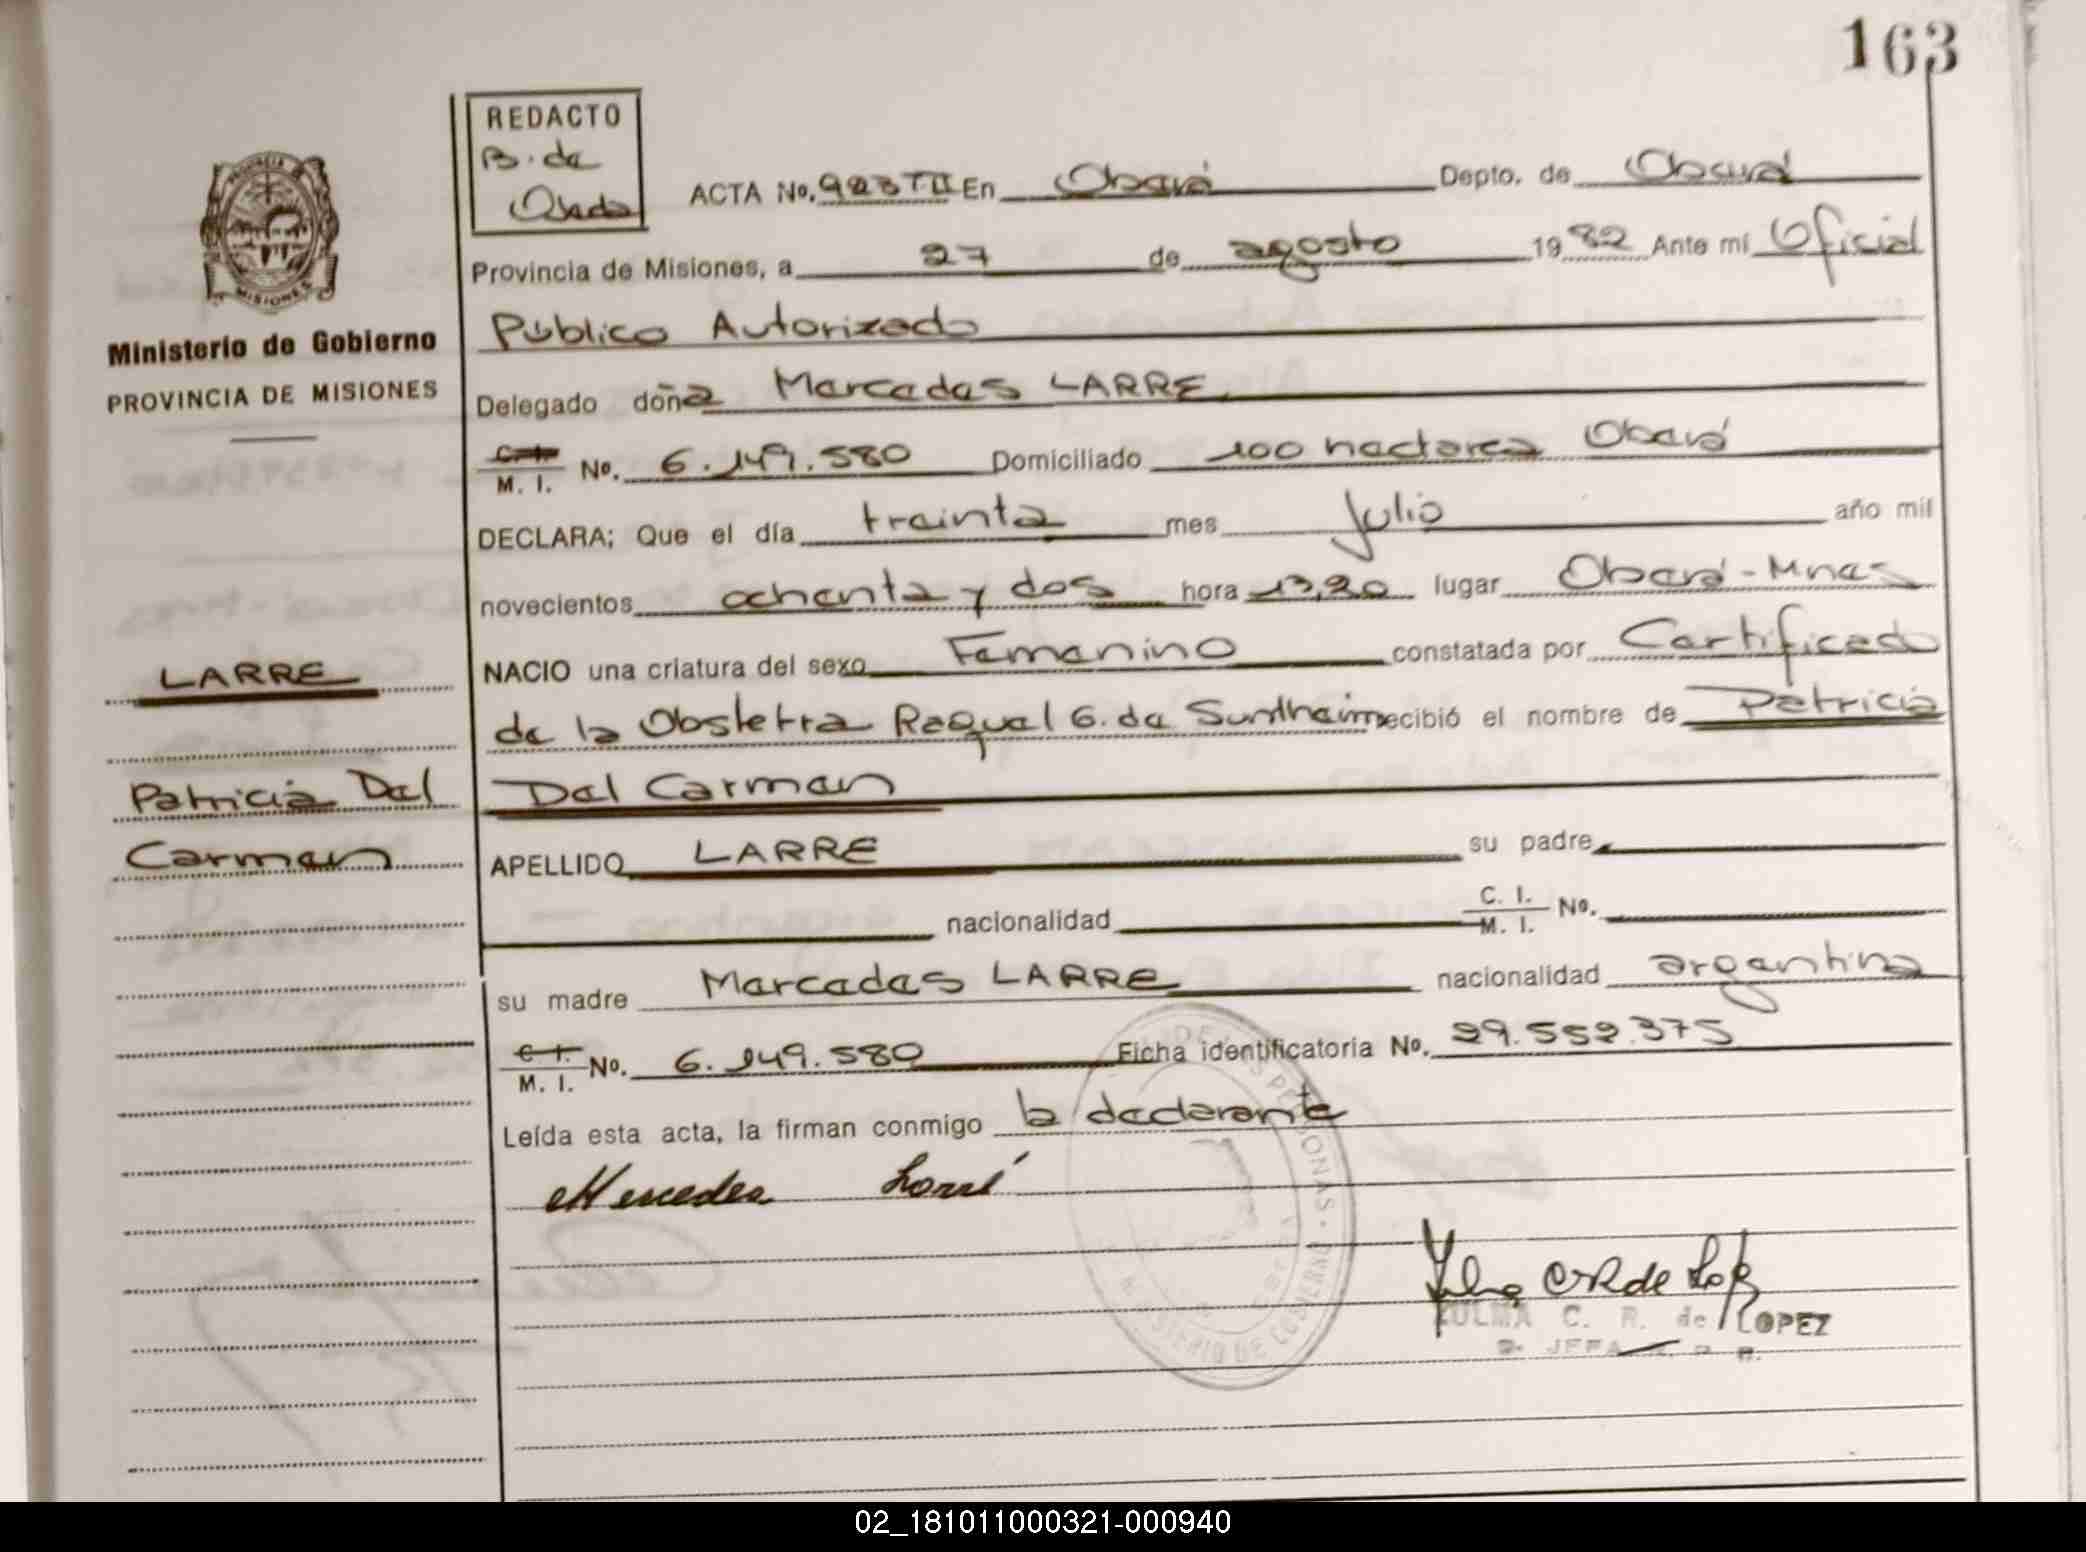 163
REDACTO
B. de
Ojeda
ACTA No. 923 TII En Oberá Depto. de Oberá
Provincia de Misiones, a 27 de agosto 1982 Ante mí Oficial
Público Autorizado
Delegado doña Mercedes LARRE
C. I. / M. I. No. 6.149.580 Domiciliado 100 hectarea Oberá
DECLARA; Que el día treinta mes Julio año mil
novecientos ochenta y dos hora 13,20 lugar Oberá-Mnes
NACIO una criatura del sexo Femenino constatada por Certificado
de la Obstetra Raquel G. de Surdheim recibió el nombre de Patricia
Del Carmen
APELLIDO LARRE su padre
nacionalidad C. I. / M. I. No.
su madre Mercedes LARRE nacionalidad argentina
C. I. / M. I. No. 6.149.580 Ficha identificatoria No. 29.552.375
Leída esta acta, la firman conmigo la declarante
Mercedes Larré
ZULMA C. R. de LOPEZ
PROVINCIA
MISIONES
Ministerio de Gobierno
PROVINCIA DE MISIONES
LARRE
Patricia Del
Carmen
DE LAS PERSONAS · MINISTERIO DE GOBIERNO
02_181011000321-000940